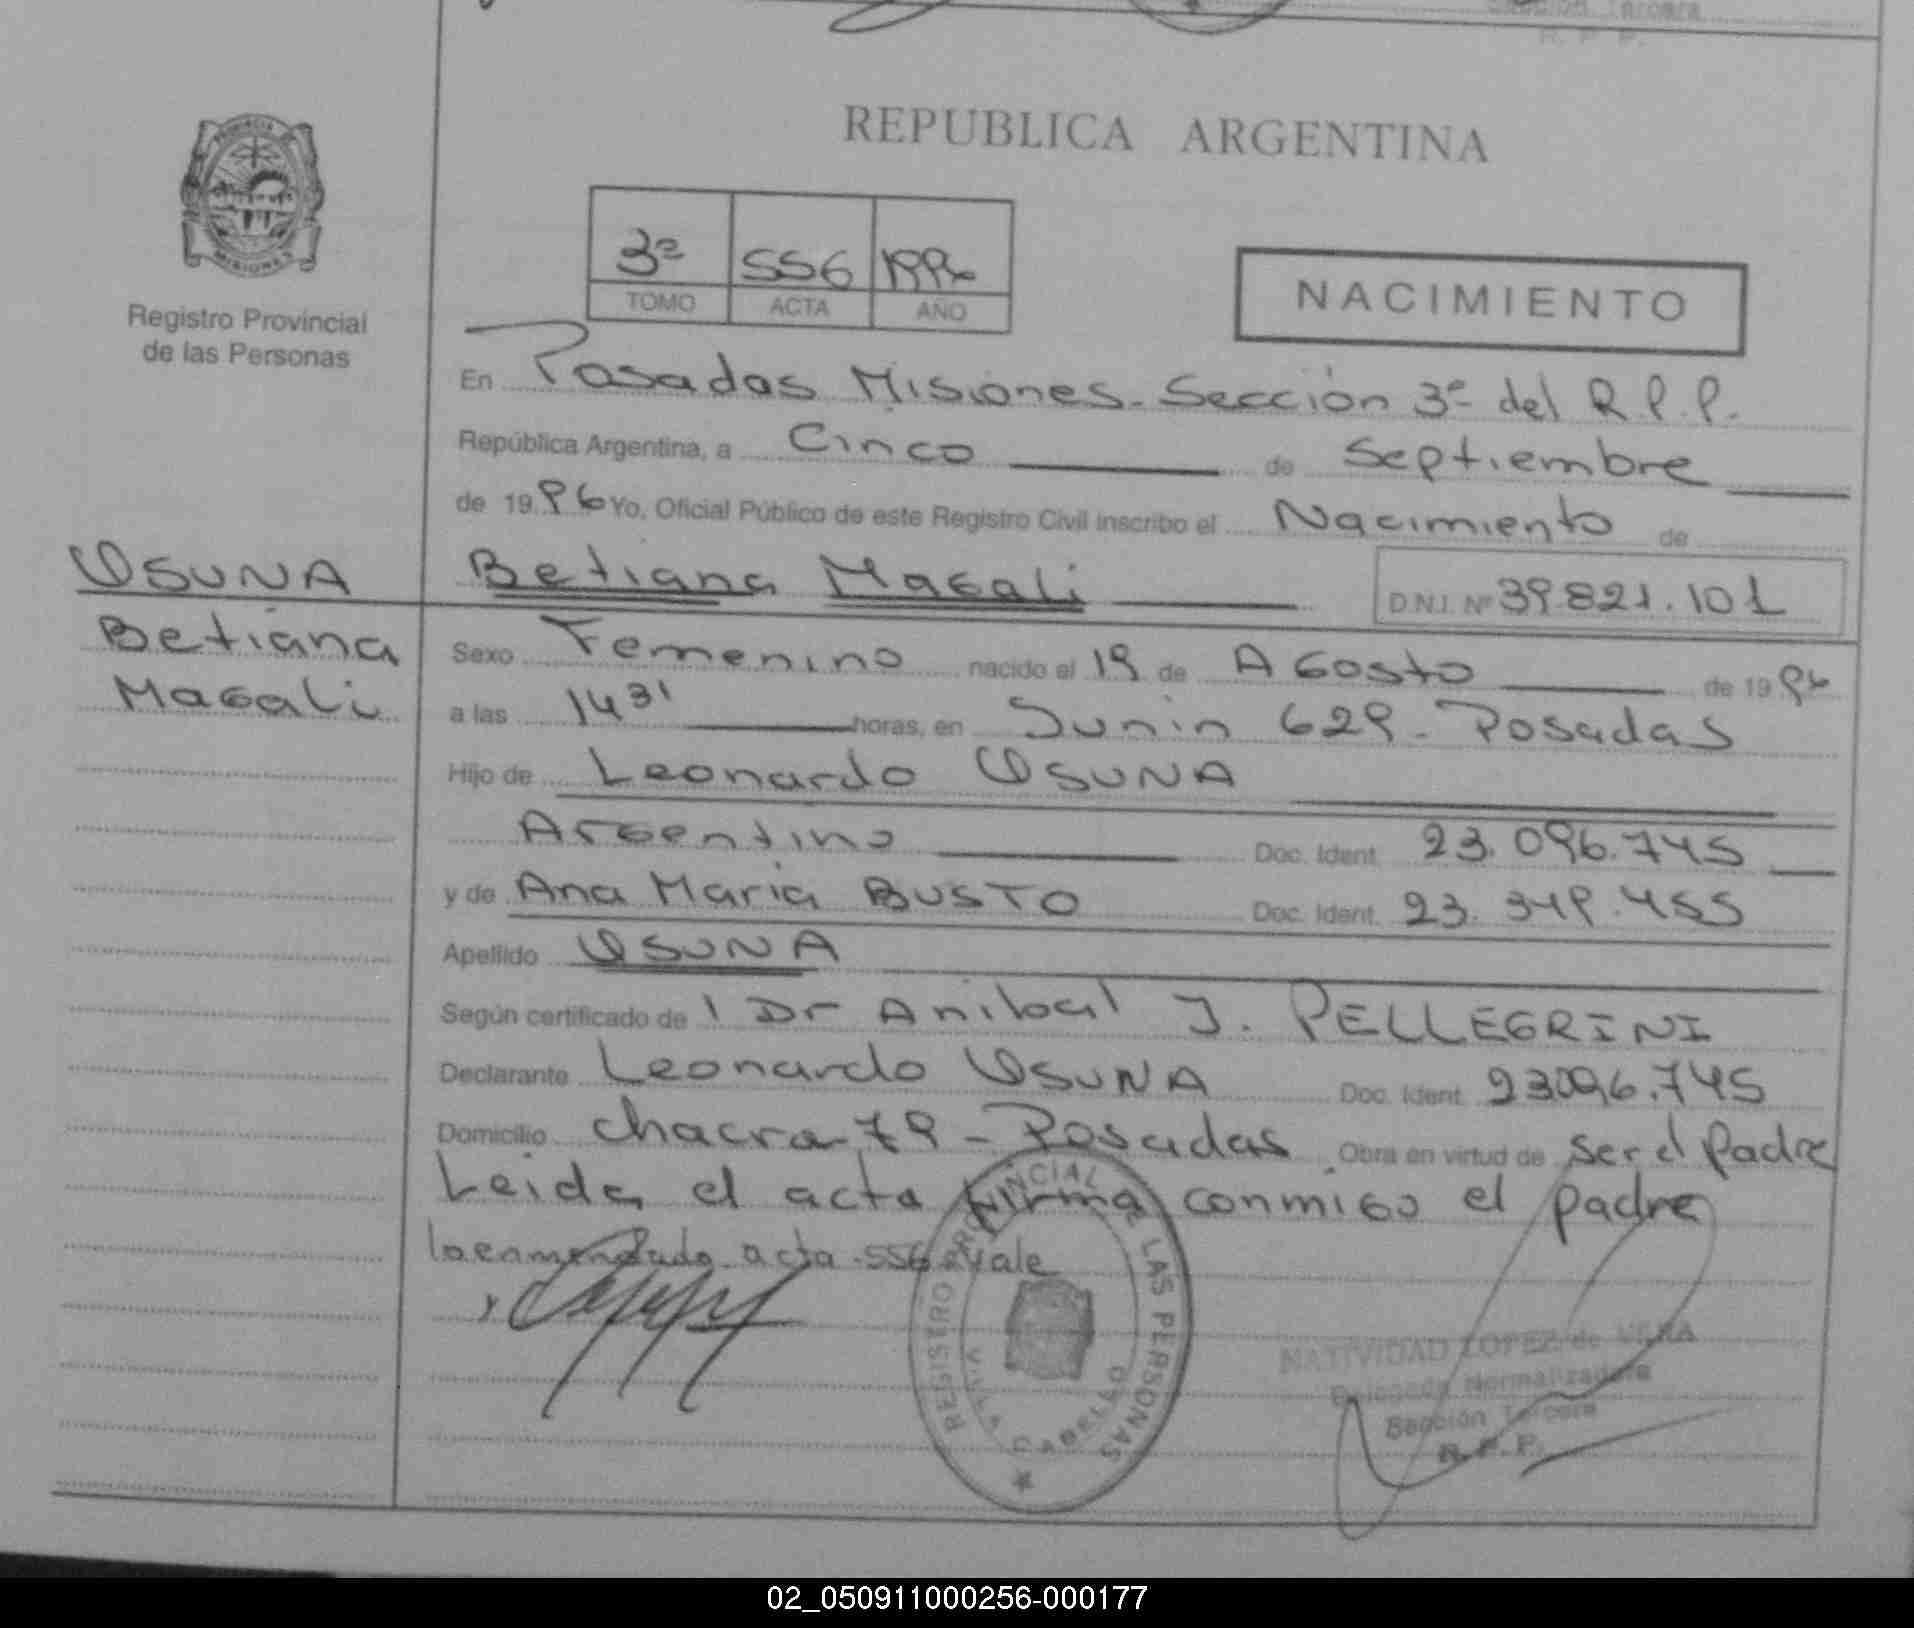 Sección Tercera
R. P. P.
REPUBLICA ARGENTINA
PROVINCIA
MISIONES
Registro Provincial
de las Personas
3ª 556 1996
TOMO ACTA AÑO
NACIMIENTO
En Posadas Misiones - Sección 3ª del R.P.P.
República Argentina, a Cinco de Septiembre
de 1996 Yo, Oficial Público de este Registro Civil inscribo el Nacimiento de
OSUNA
Betiana
Magali
Betiana Magali D.N.I. Nº 39.821.101
Sexo Femenino nacido el 19 de Agosto de 1996
a las 14 31 horas, en Junin 629 - Posadas
Hijo de Leonardo OSUNA
Argentino Doc. Ident. 23.096.745
y de Ana Maria BUSTO Doc. Ident. 23.349.455
Apellido OSUNA
Según certificado de l Dr Anibal J. PELLEGRINI
Declarante Leonardo OSUNA Doc. Ident. 23096.745
Domicilio Chacra 79 - Posadas Obra en virtud de ser el padre
Leida el acta firma conmigo el padre
lo enmendado acta 556 Vale
REGISTRO PROVINCIAL DE LAS PERSONAS
VILLA CABELLO
NATIVIDAD LOPEZ de VERA
Delegada Normalizadora
Sección Tercera
R. P. P.
02_050911000256-000177